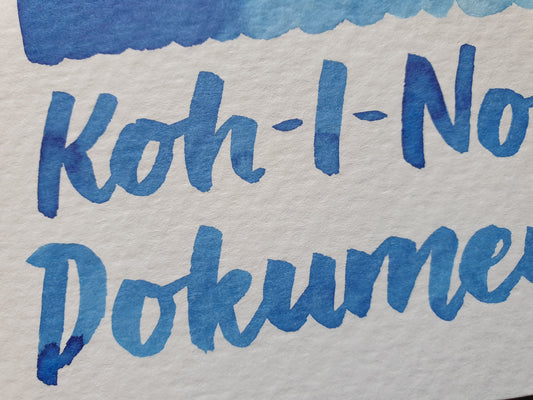 Koh-I-No
Dokume